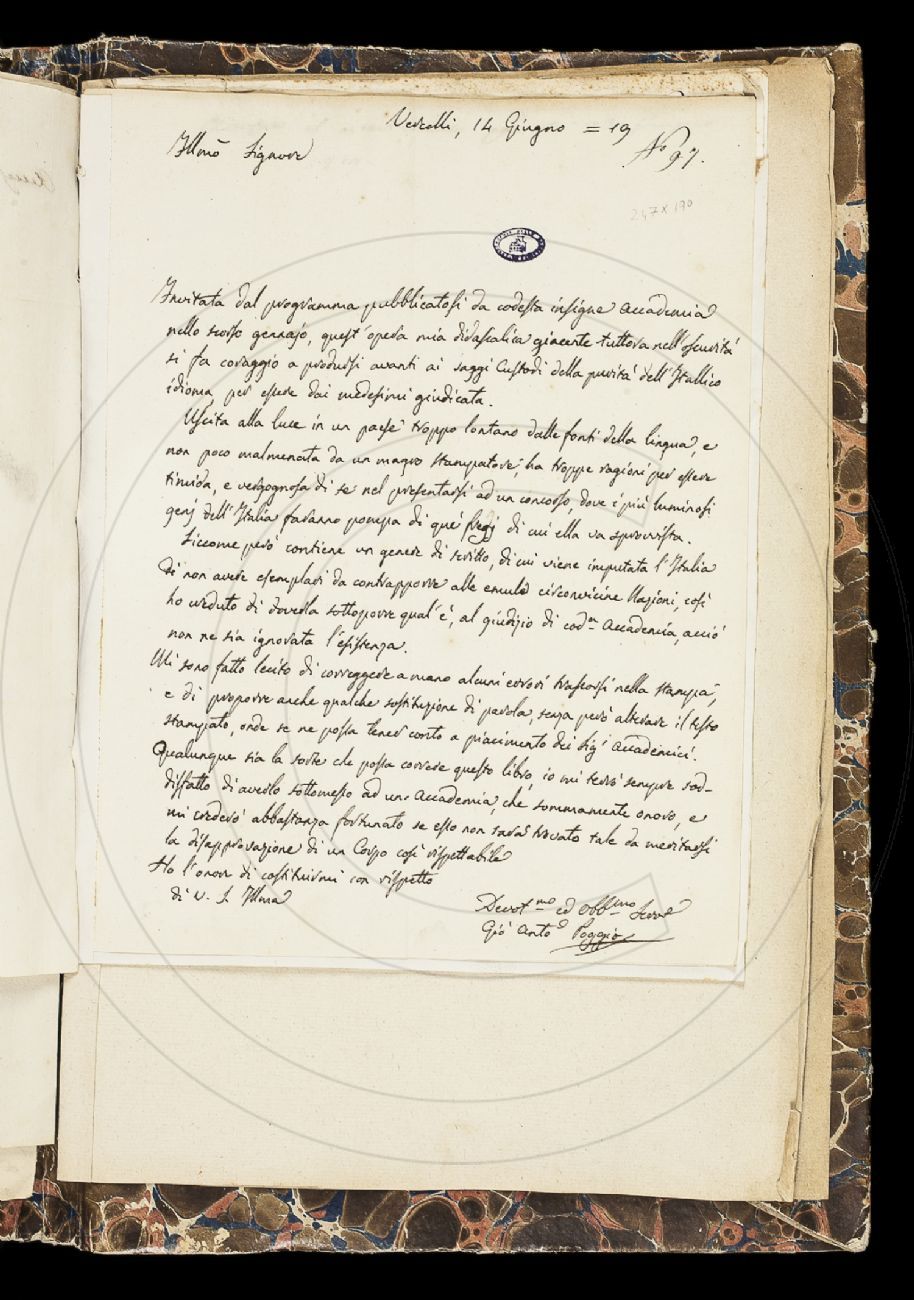 Vercelli, 14 Giugno = 19
Illmõ Signore
N.º 97.
247 x 190
Invitata dal programma pubblicatosi da codesta insigne Accademia
nello scorso gennajo, quest'opera mia didascalica giacente tuttora nell'oscurità
si fa coraggio a prodursi avanti ai saggi Custodi della purità dell'Itallico
idioma, per essere dai medesimi giudicata.
Uscita alla luce in un paese troppo lontano dalle fonti della lingua, e
non poco malmenata da un magro stampatore, ha troppe ragioni per essere
timida, e vergognosa di se nel presentarsi ad un concorso, dove i più luminosi
genj dell'Italia faranno pompa di que' fregj di cui ella va sprovvista.
Siccome però contiene un genere di scritto, di cui viene imputata l'Italia
di non avere esemplari da contrapporre alle emule circonvicine Nazioni, così
ho creduto di doverla sottoporre qual'è, al giudizio di cod.ª Accademia, acciò
non ne sia ignorata l'esistenza.
Mi sono fatto lecito di correggere a mano alcuni errori trascorsi nella stampa,
e di proporre anche qualche sostituzione di parola, senza però alterare il testo
stampato, onde se ne possa tener conto a piacimento dei Sig.i Accademici.
Qualunque sia la sorte che possa correre questo libro, io mi terrò sempre sod-
disfatto di averlo sottomesso ad un Accademia, che sommamente onoro, e
mi crederò abbastanza fortunato se esso non sarà trovato tale da meritarsi
la disapprovazione di un Corpo così rispettabile
Ho l'onore di costituirmi con rispetto
di V. S. Illma
Devot.mo ed Obb.mo Serve
Giõ Anto.º Poggio